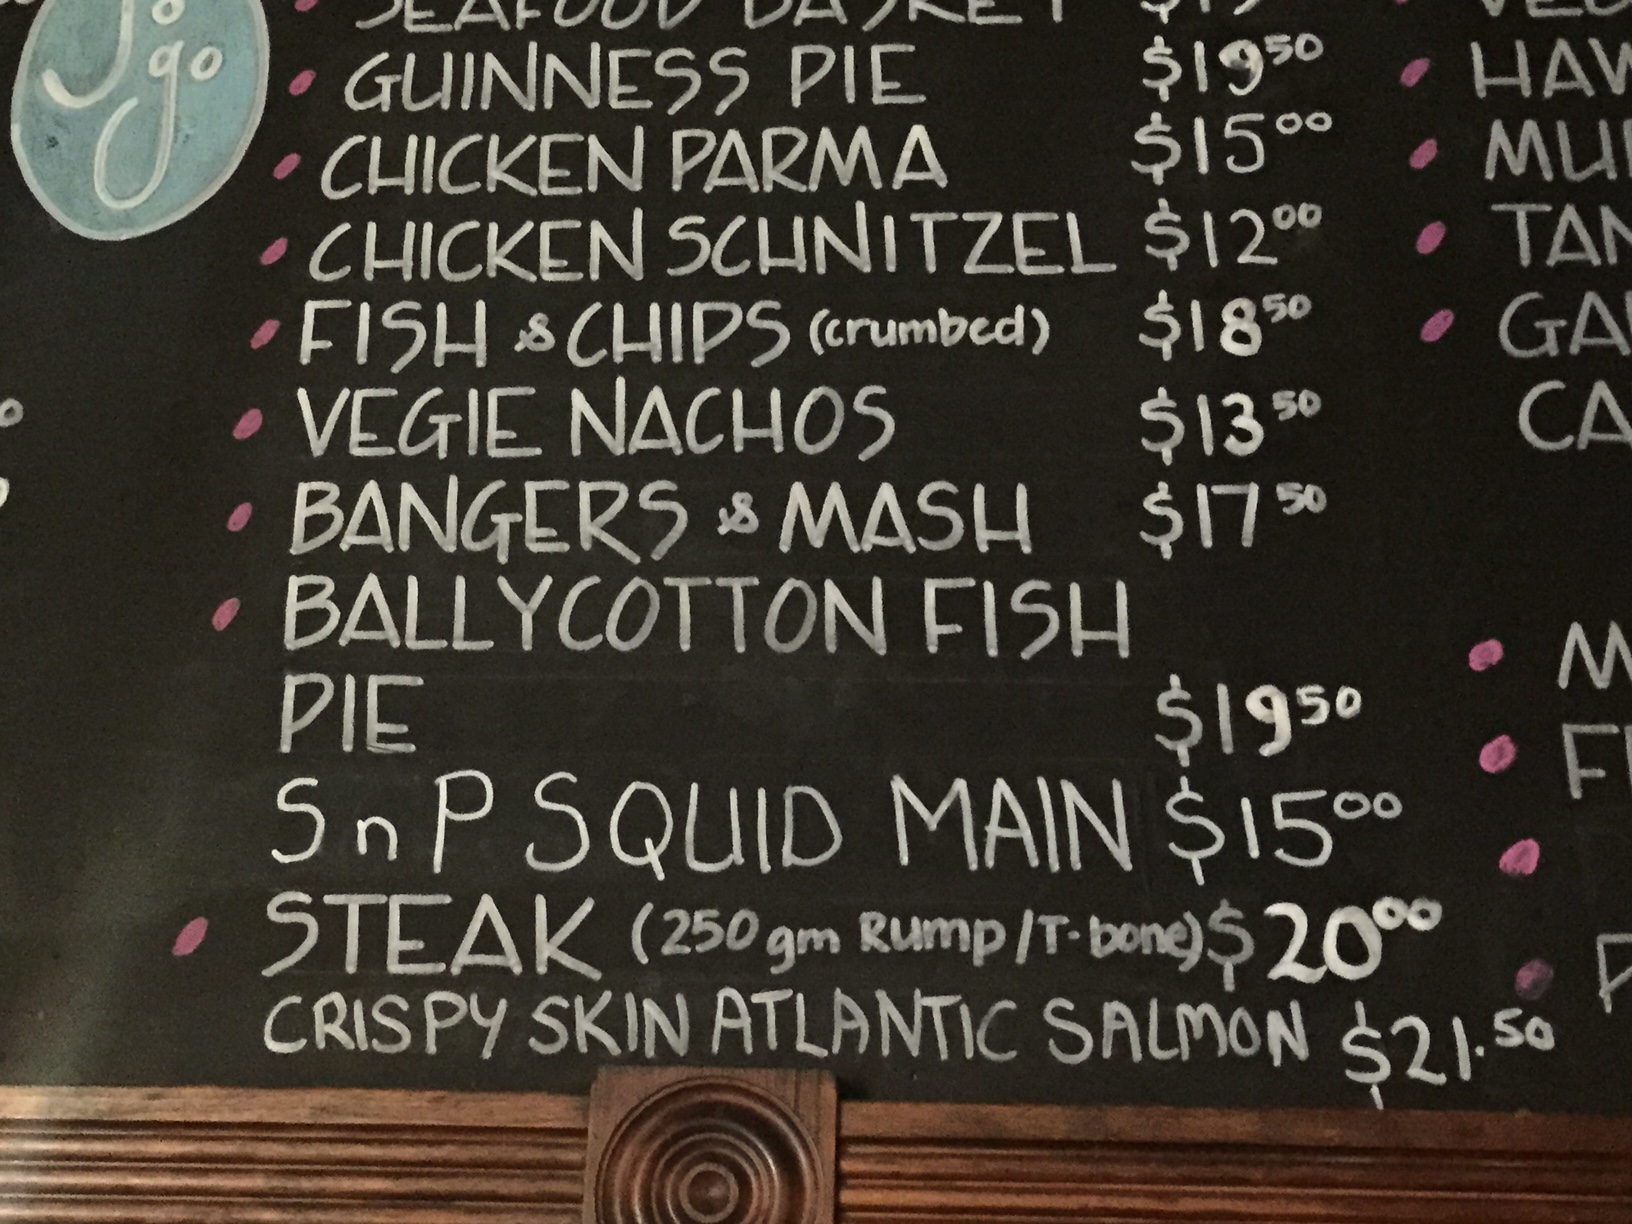 To
go
SEAFOOD BASKET
GUINNESS PIE $19 50
CHICKEN PARMA $15 00
CHICKEN SCHNITZEL $12 00
FISH & CHIPS (crumbed) $18 50
VEGIE NACHOS $13 50
BANGERS & MASH $17 50
BALLYCOTTON FISH
PIE $19 50
SnP SQUID MAIN $15 00
STEAK (250 gm Rump/T-bone) $20 00
CRISPY SKIN ATLANTIC SALMON $21.50